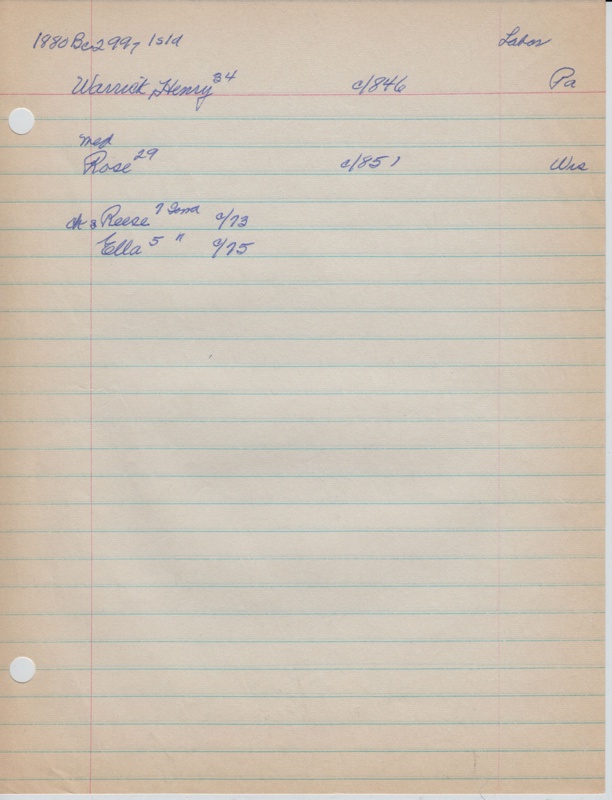 1880 Bc 299, Isld Labor
Warrick, Henry 34 c/846 Pa
med
Rose 29 c/851 Wis
ch 2 Reese 7 Iowa c/73
Ella 5 " c/75